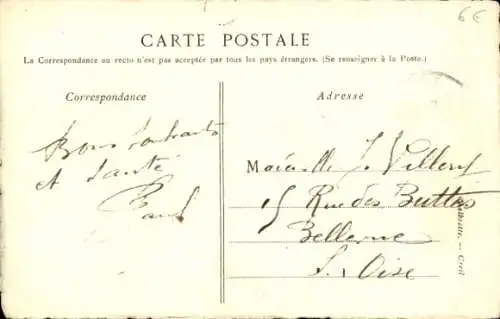 6€
CARTE POSTALE
La Correspondance au recto n'est pas acceptée par tous les pays étrangers. (Se renseigner à la Poste.)
Correspondance
Adresse
Bons souhaits
et Santé
Paul
J. Villery
15 Rue des Buttes
Bellevue
S. Oise
Creil